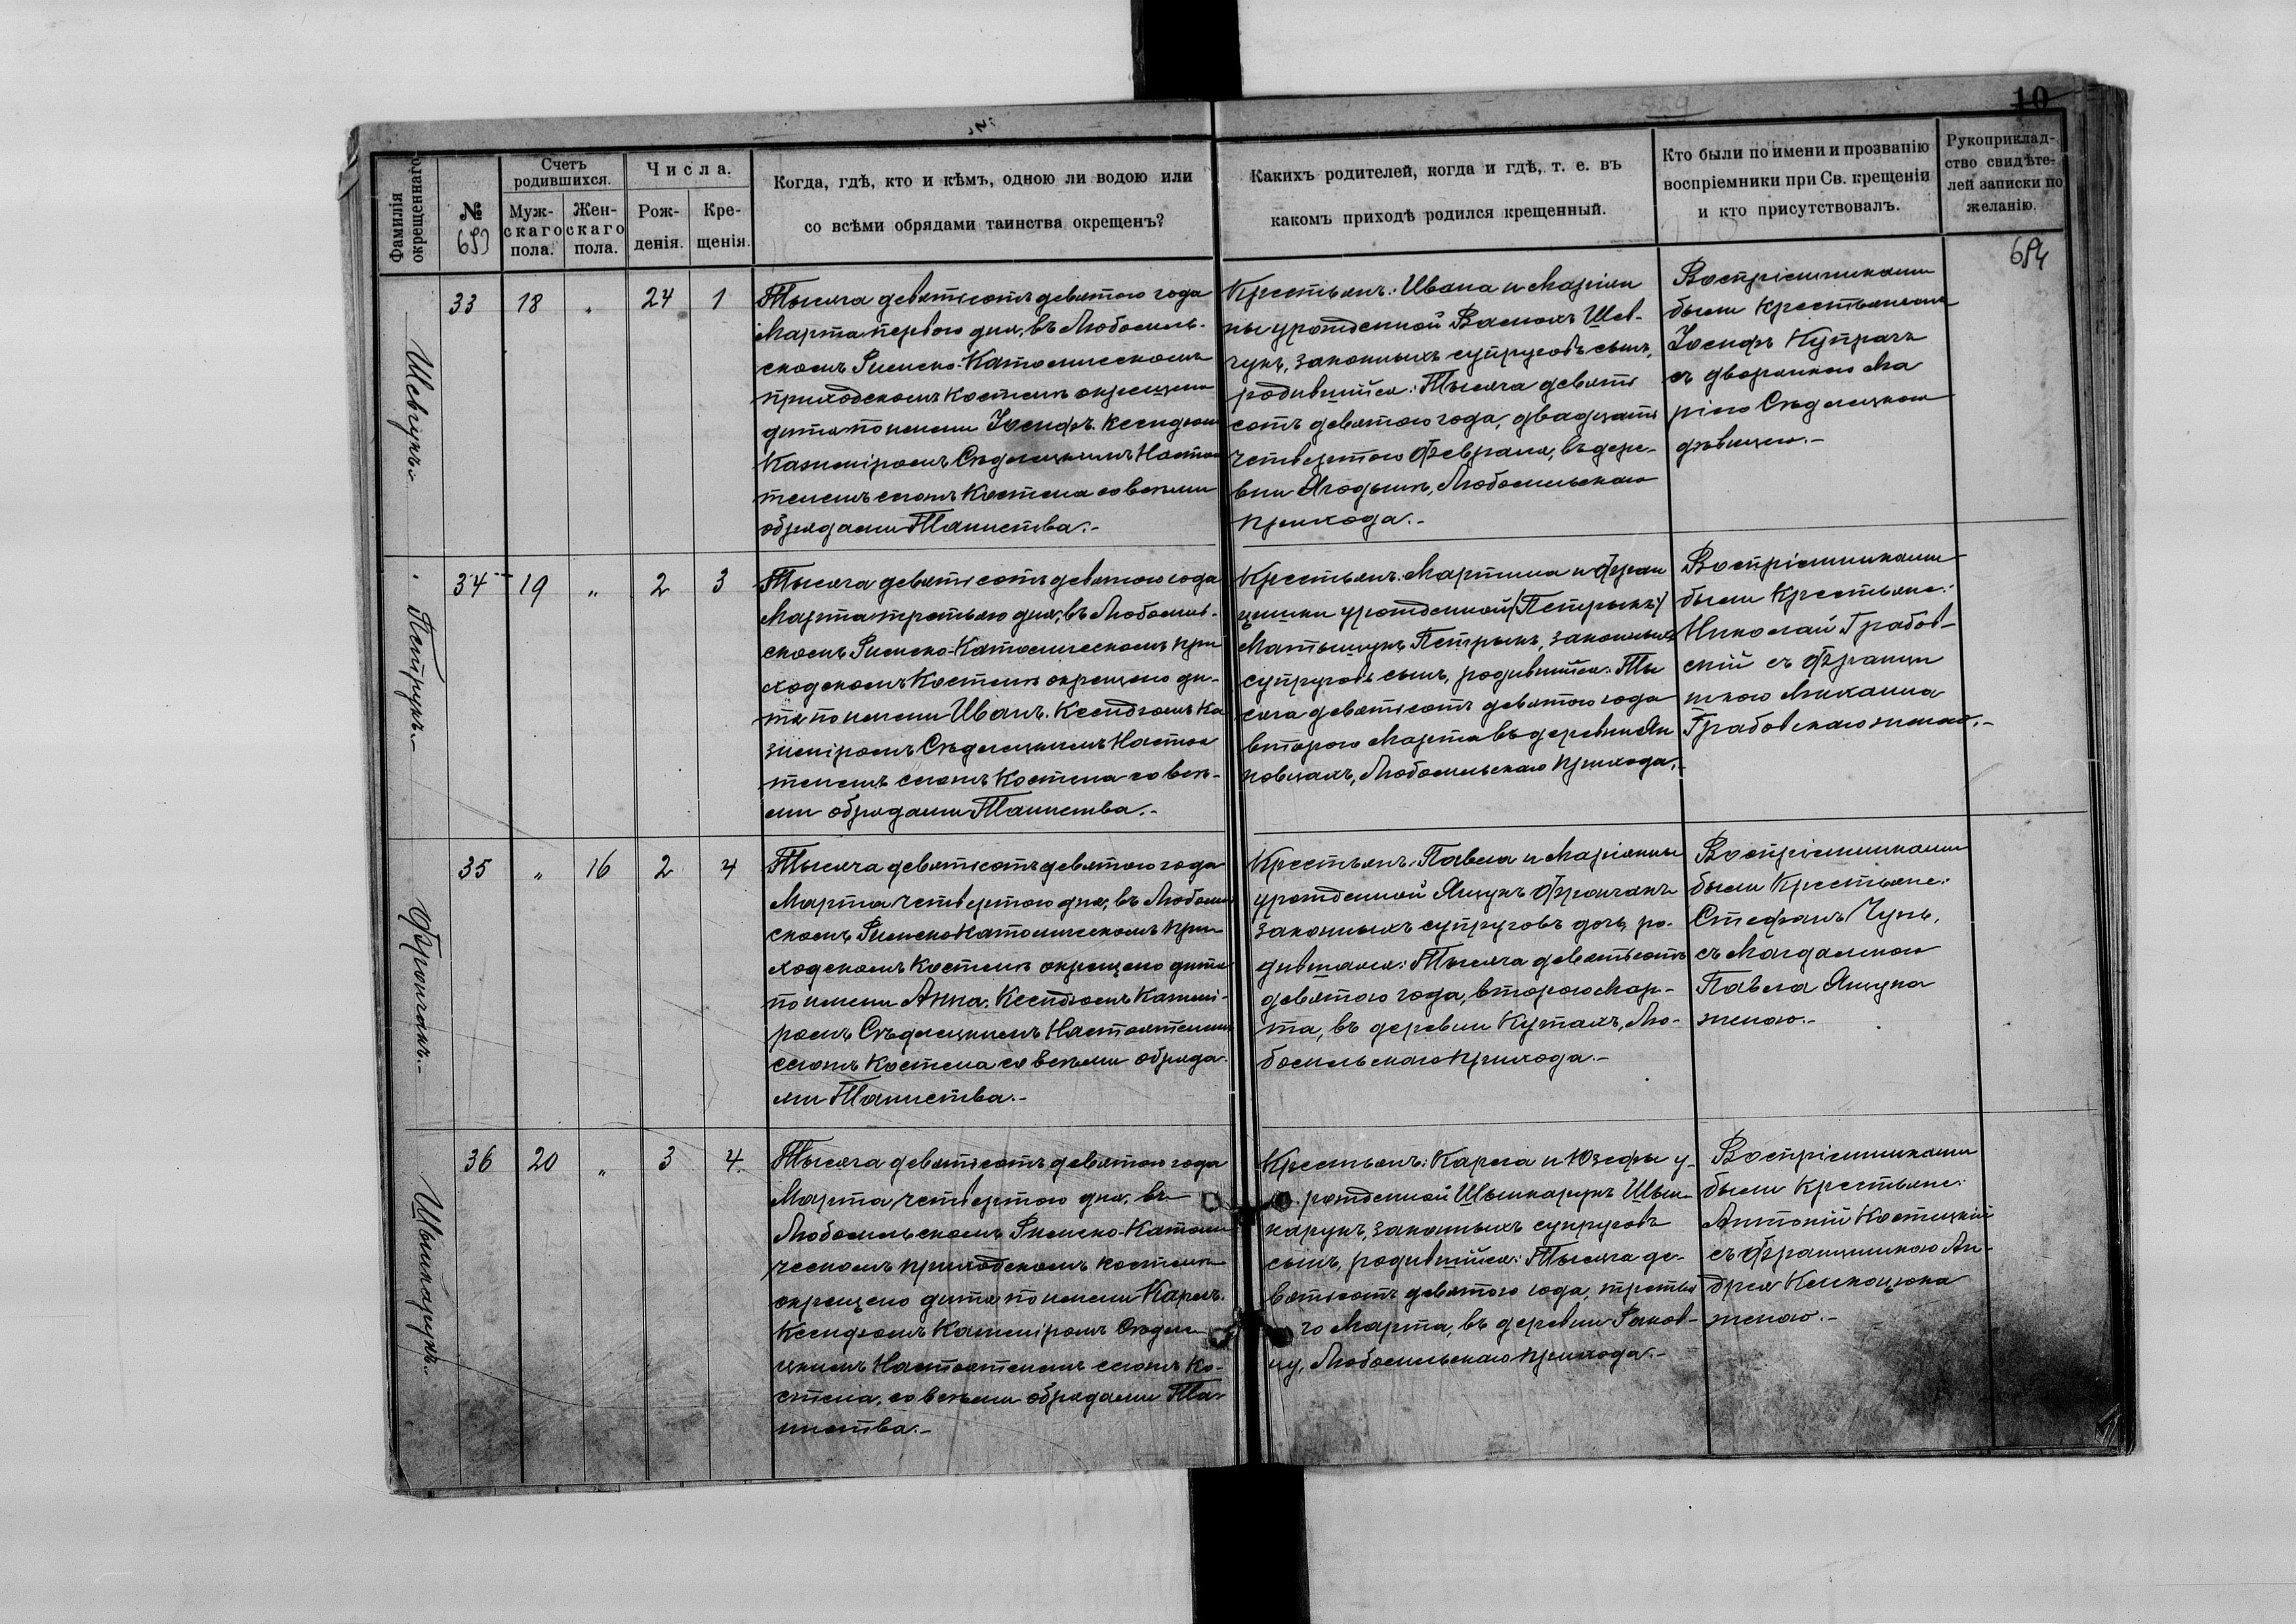 10
Фамилія окрещеннаго.
№
653
Счетъ родившихся.
Мужскаго пола.
Женскаго пола.
Числа.
Рожденія.
Крещенія.
Когда, гдѣ, кто и кѣмъ, одною ли водою или
со всѣми обрядами таинства окрещенъ?
Какихъ родителей, когда и гдѣ, т. е. въ
какомъ приходѣ родился крещенный.
Кто были по имени и прозванію
воспріемники при Св. крещеніи
и кто присутствовалъ.
Рукоприклад-
ство свидѣте-
лей записки по
желанію.
654
Шевчукъ.
33 18 " 24 1
Тысяча девятьсотъ девятого года
Марта перваго дня, въ Любомль-
скомъ Римско-Католическомъ
приходскомъ Костелѣ окрещено
дитя по имени Іосифъ. Ксендзомъ
Казиміромъ Сѣдлецкимъ Настоя
телемъ сего-жъ Костела со всѣми
обрядами Таинства.-
Крестьянъ: Ивана и Маріан
ны урожденной Васюкъ Шев-
чукъ, законныхъ супруговъ сынъ,
родившійся: Тысяча девять
сотъ девятого года, двадцать
четвертого Февраля, въ дере-
вни Ягодынѣ, Любомльскаго
прихода.-
Воспріемниками
были Крестьянинъ
Іосифъ Купрачъ
съ дворянкою Ма
ріею Сѣдлецкою
дѣвицею.-
Петрукъ.
34 19 " 2 3
Тысяча девятьсотъ девятого года
Марта третьяго дня, въ Любомль-
скомъ Римско-Католическомъ при
ходскомъ Костелѣ окрещено ди-
тя по имени Иванъ. Ксендзомъ Ка
зиміромъ Сѣдлецкимъ Настоя
телемъ сего-жъ Костела со всѣ-
ми обрядами Таинства.-
Крестьянъ: Мартина и Фран
цишки урожденной (Петрыкъ)
Матыщукъ Петрыкъ, законныхъ
супруговъ сынъ, родившійся: Ты
сяча девятьсотъ девятого года
второго Марта въ деревни Яц
ковцахъ, Любомльскаго прихода.-
Воспріемниками
были Крестьяне:
Николай Грабов-
скій съ Францы
шкою Михаила
Грабовскаго женою.-
Фрончакъ.
35 " 16 2 4
Тысяча девятьсотъ девятого года
Марта четвертого дня, въ Любомль
скомъ Римско Католическомъ при
ходскомъ Костелѣ окрещено дитя
по имени Анна. Ксендзомъ Казимі-
ромъ Сѣдлецкимъ Настоятелемъ
сего-жъ Костела со всѣми обряда-
ми Таинства.-
Крестьянъ: Павла и Маріанны
урожденной Ящукъ Фрончакъ
законныхъ супруговъ дочь, ро-
дившаяся: Тысяча девятьсотъ
девятого года, второго Мар-
та, въ деревни Кутахъ, Лю-
бомльскаго прихода.-
Воспріемниками
были Крестьяне:
Стефанъ Чупъ,
съ Магдаленою
Павла Ящука
женою.-
Шыикарукъ.
36 20 " 3 4.
Тысяча девятьсотъ девятого года
Марта четвертого дня, въ
Любомльскомъ Римско-Католи
ческомъ приходскомъ костелѣ
окрещено дитя по имени Карлъ.
Ксендзомъ Казиміромъ Сѣдле-
цкимъ Настоятелемъ сего-жъ Ко-
стела, со всѣми обрядами Та-
инства.-
Крестьянъ: Карла и Юзефы у-
рожденной Шыикарукъ Шыи
карукъ, законныхъ супруговъ
сынъ, родившійся: Тысяча де-
вятьсотъ девятого года, третья
го Марта, въ деревни Раков-
цу, Любомльскаго прихода.-
Воспріемниками
были Крестьяне:
Антоній Костицкій
съ Францишкою Ан-
дрея
женою.-